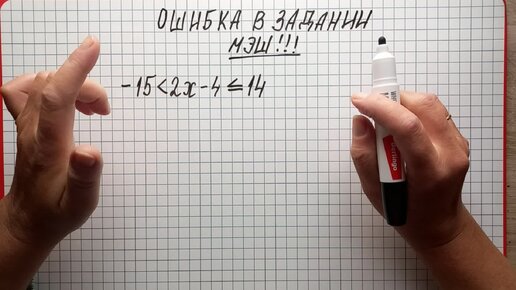 ОШИБКА В ЗАДАНИИ
МЭШ!!!
-15<2x-4≤14